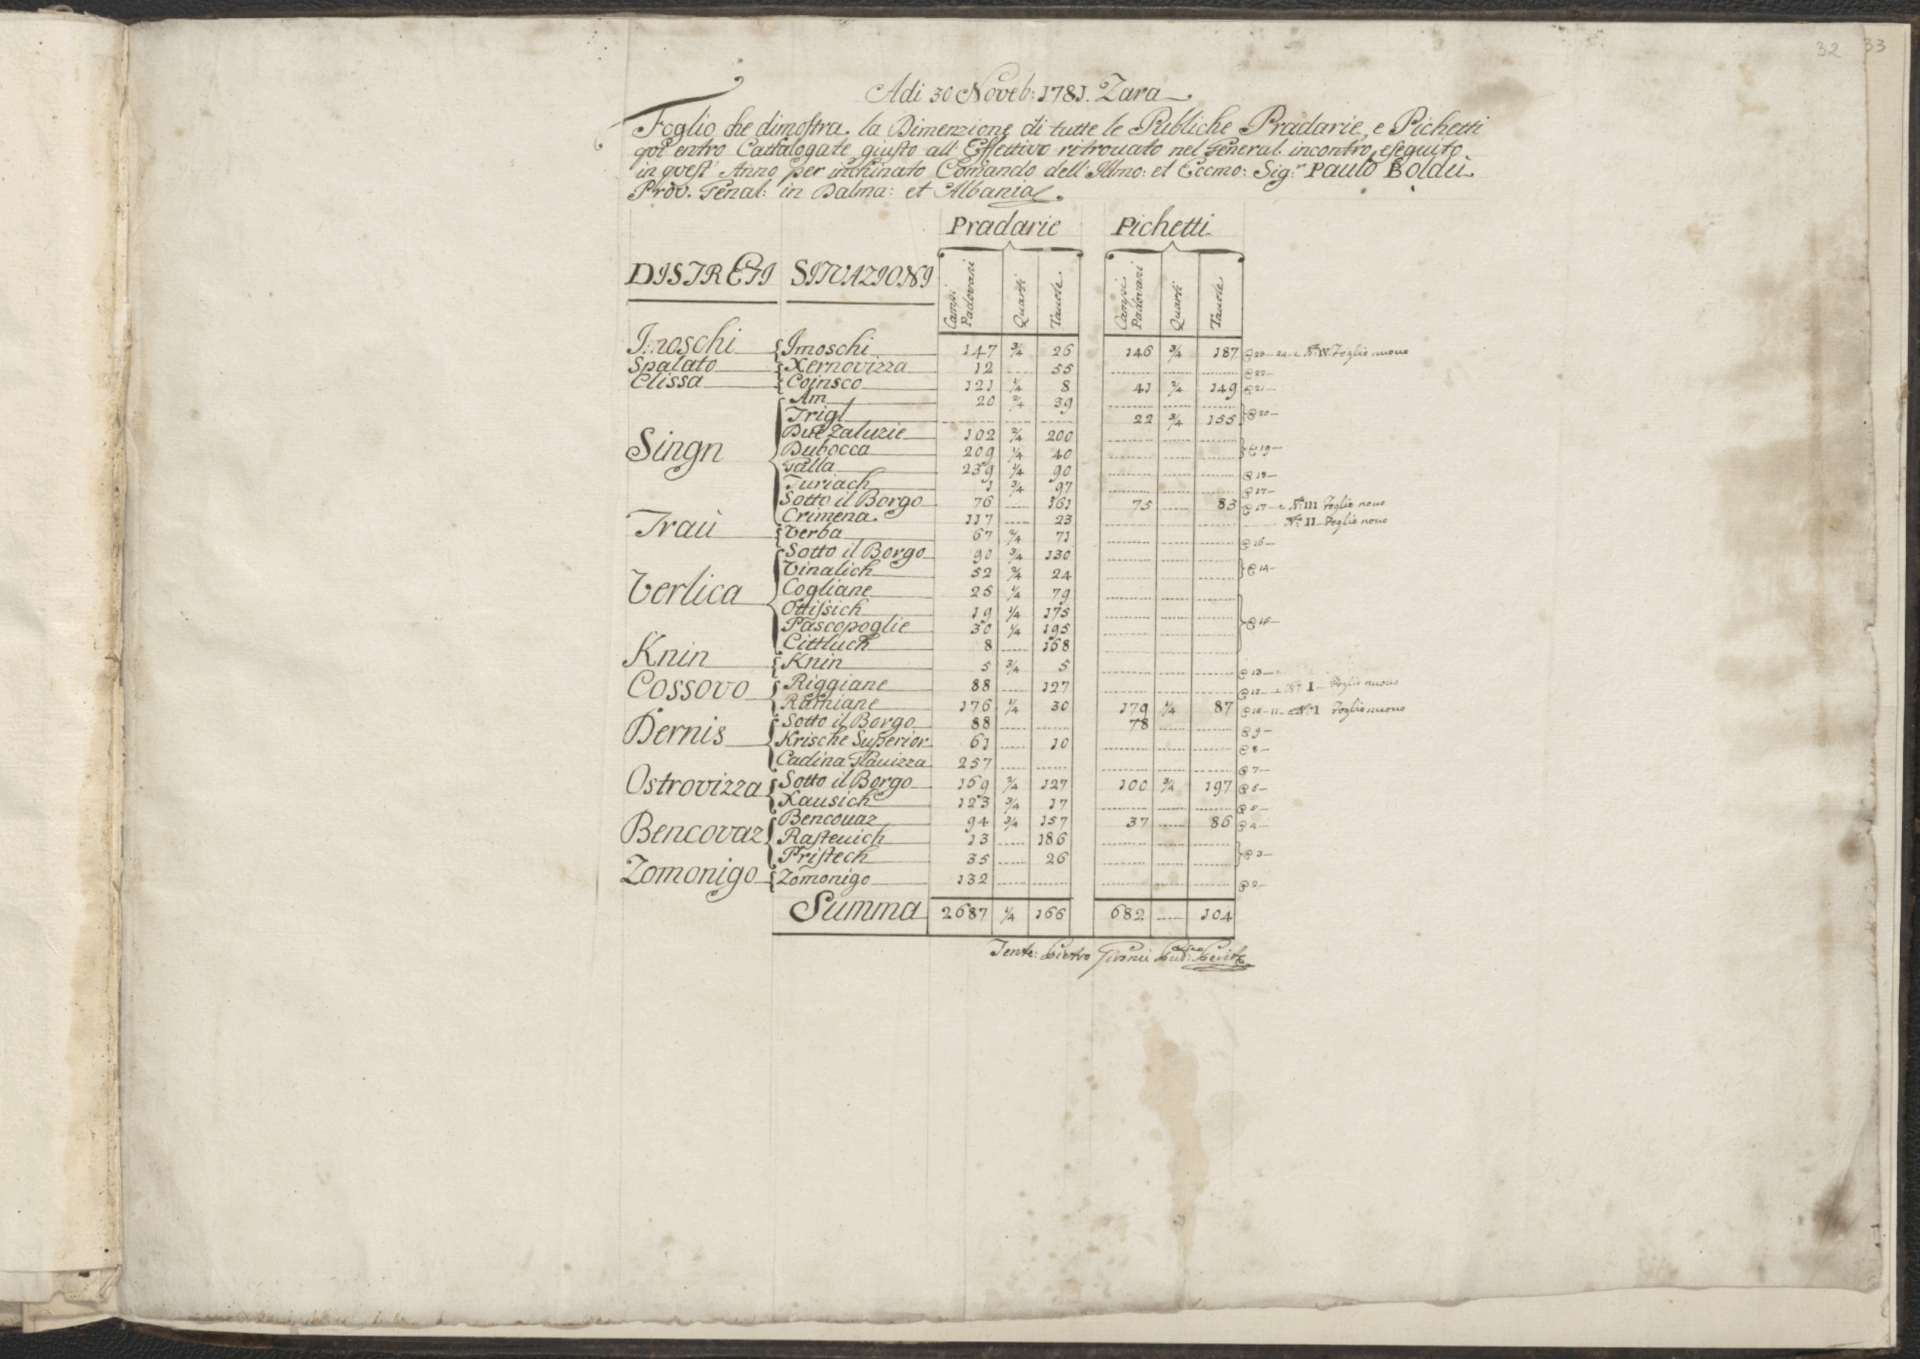 32 33
Adi 30 Noveb: 1781. Zara
Foglio che dimostra la Dimenzione di tutte le Publiche Pradarie, e Pichetti
qui entro Cattalogate giusto all' Effettivo ritrouato nel General incontro eseguito
in quest' Anno per inchinato Comando dell' Illmo: et Eccmo: Sig:r Paulo Boldù
Prov. Genal: in Dalma: et Albania
Pradarie Pichetti
DISTRETI SITVAZIONI Campi Padovani Quarti Tauole Campi Padovani Quarti Tauole
Imoschi Imoschi 147 3/4 26 146 3/4 187 @ 23 - 24 - e N: IV Foglio nuouo
Spalato Xernovizza 12 ...... 55 ...... ...... ...... @ 22 -
Clissa Coinsco 121 1/4 8 41 3/4 149 @ 21 -
Am 20 2/4 39 ...... ...... ...... @ 20 -
Trigl ...... ...... ...... 22 3/4 155
Singn Due Zaluzie 102 2/4 200 ...... ...... ......
Dubocca 209 1/4 40 ...... ...... ...... @ 19 -
Talla 239 1/4 90 ...... ...... ...... @ 18 -
Turiach 1 3/4 97 ...... ...... ...... @ 17 -
Sotto il Borgo 76 ...... 161 75 ...... 83 @ 17 - e N: III Foglio nouo
Crimena 117 ...... 23 ...... ...... ...... N: II Foglio nouo
Traù Verba 67 2/4 71 ...... ...... ...... @ 16 -
Sotto il Borgo 90 3/4 130 ...... ...... ......
Vinalich 52 2/4 24 ...... ...... ...... @ 14 -
Verlica Cogliane 25 1/4 79 ...... ...... ......
Ottissich 19 1/4 175 ...... ...... ......
Pascopoglie 30 1/4 195 ...... ...... ...... @ 15 -
Cittluch 8 ...... 168 ...... ...... ......
Knin Knin 5 3/4 5 ...... ...... ...... @ 13 -
Cossovo Riggiane 88 ...... 127 ...... ...... ...... @ 12 - e N: I Foglio nuouo
Ramiane 176 1/4 30 179 1/4 87 @ 10 - 11 - e N: I Foglio nuouo
Dernis Sotto il Borgo 88 ...... ...... 78 ...... ...... @ 9 -
Krische Superior 61 ...... 10 ...... ...... ...... @ 8 -
Cadina Glauizza 257 ...... ...... ...... ...... ...... @ 7 -
Ostrovizza Sotto il Borgo 169 2/4 127 100 3/4 197 @ 6 -
Xausich 123 3/4 17 ...... ...... ...... @ 5 -
Bencovaz Bencouaz 94 3/4 157 37 ...... 86 @ 4 -
Rasteuich 13 ...... 186 ...... ...... ......
Pristech 35 ...... 26 ...... ...... ...... @ 3 -
Zomonigo Zomonigo 132 ...... ...... ...... ...... ...... @ 2 -
Summa 2687 1/4 166 682 ...... 104
Tente: Pietro